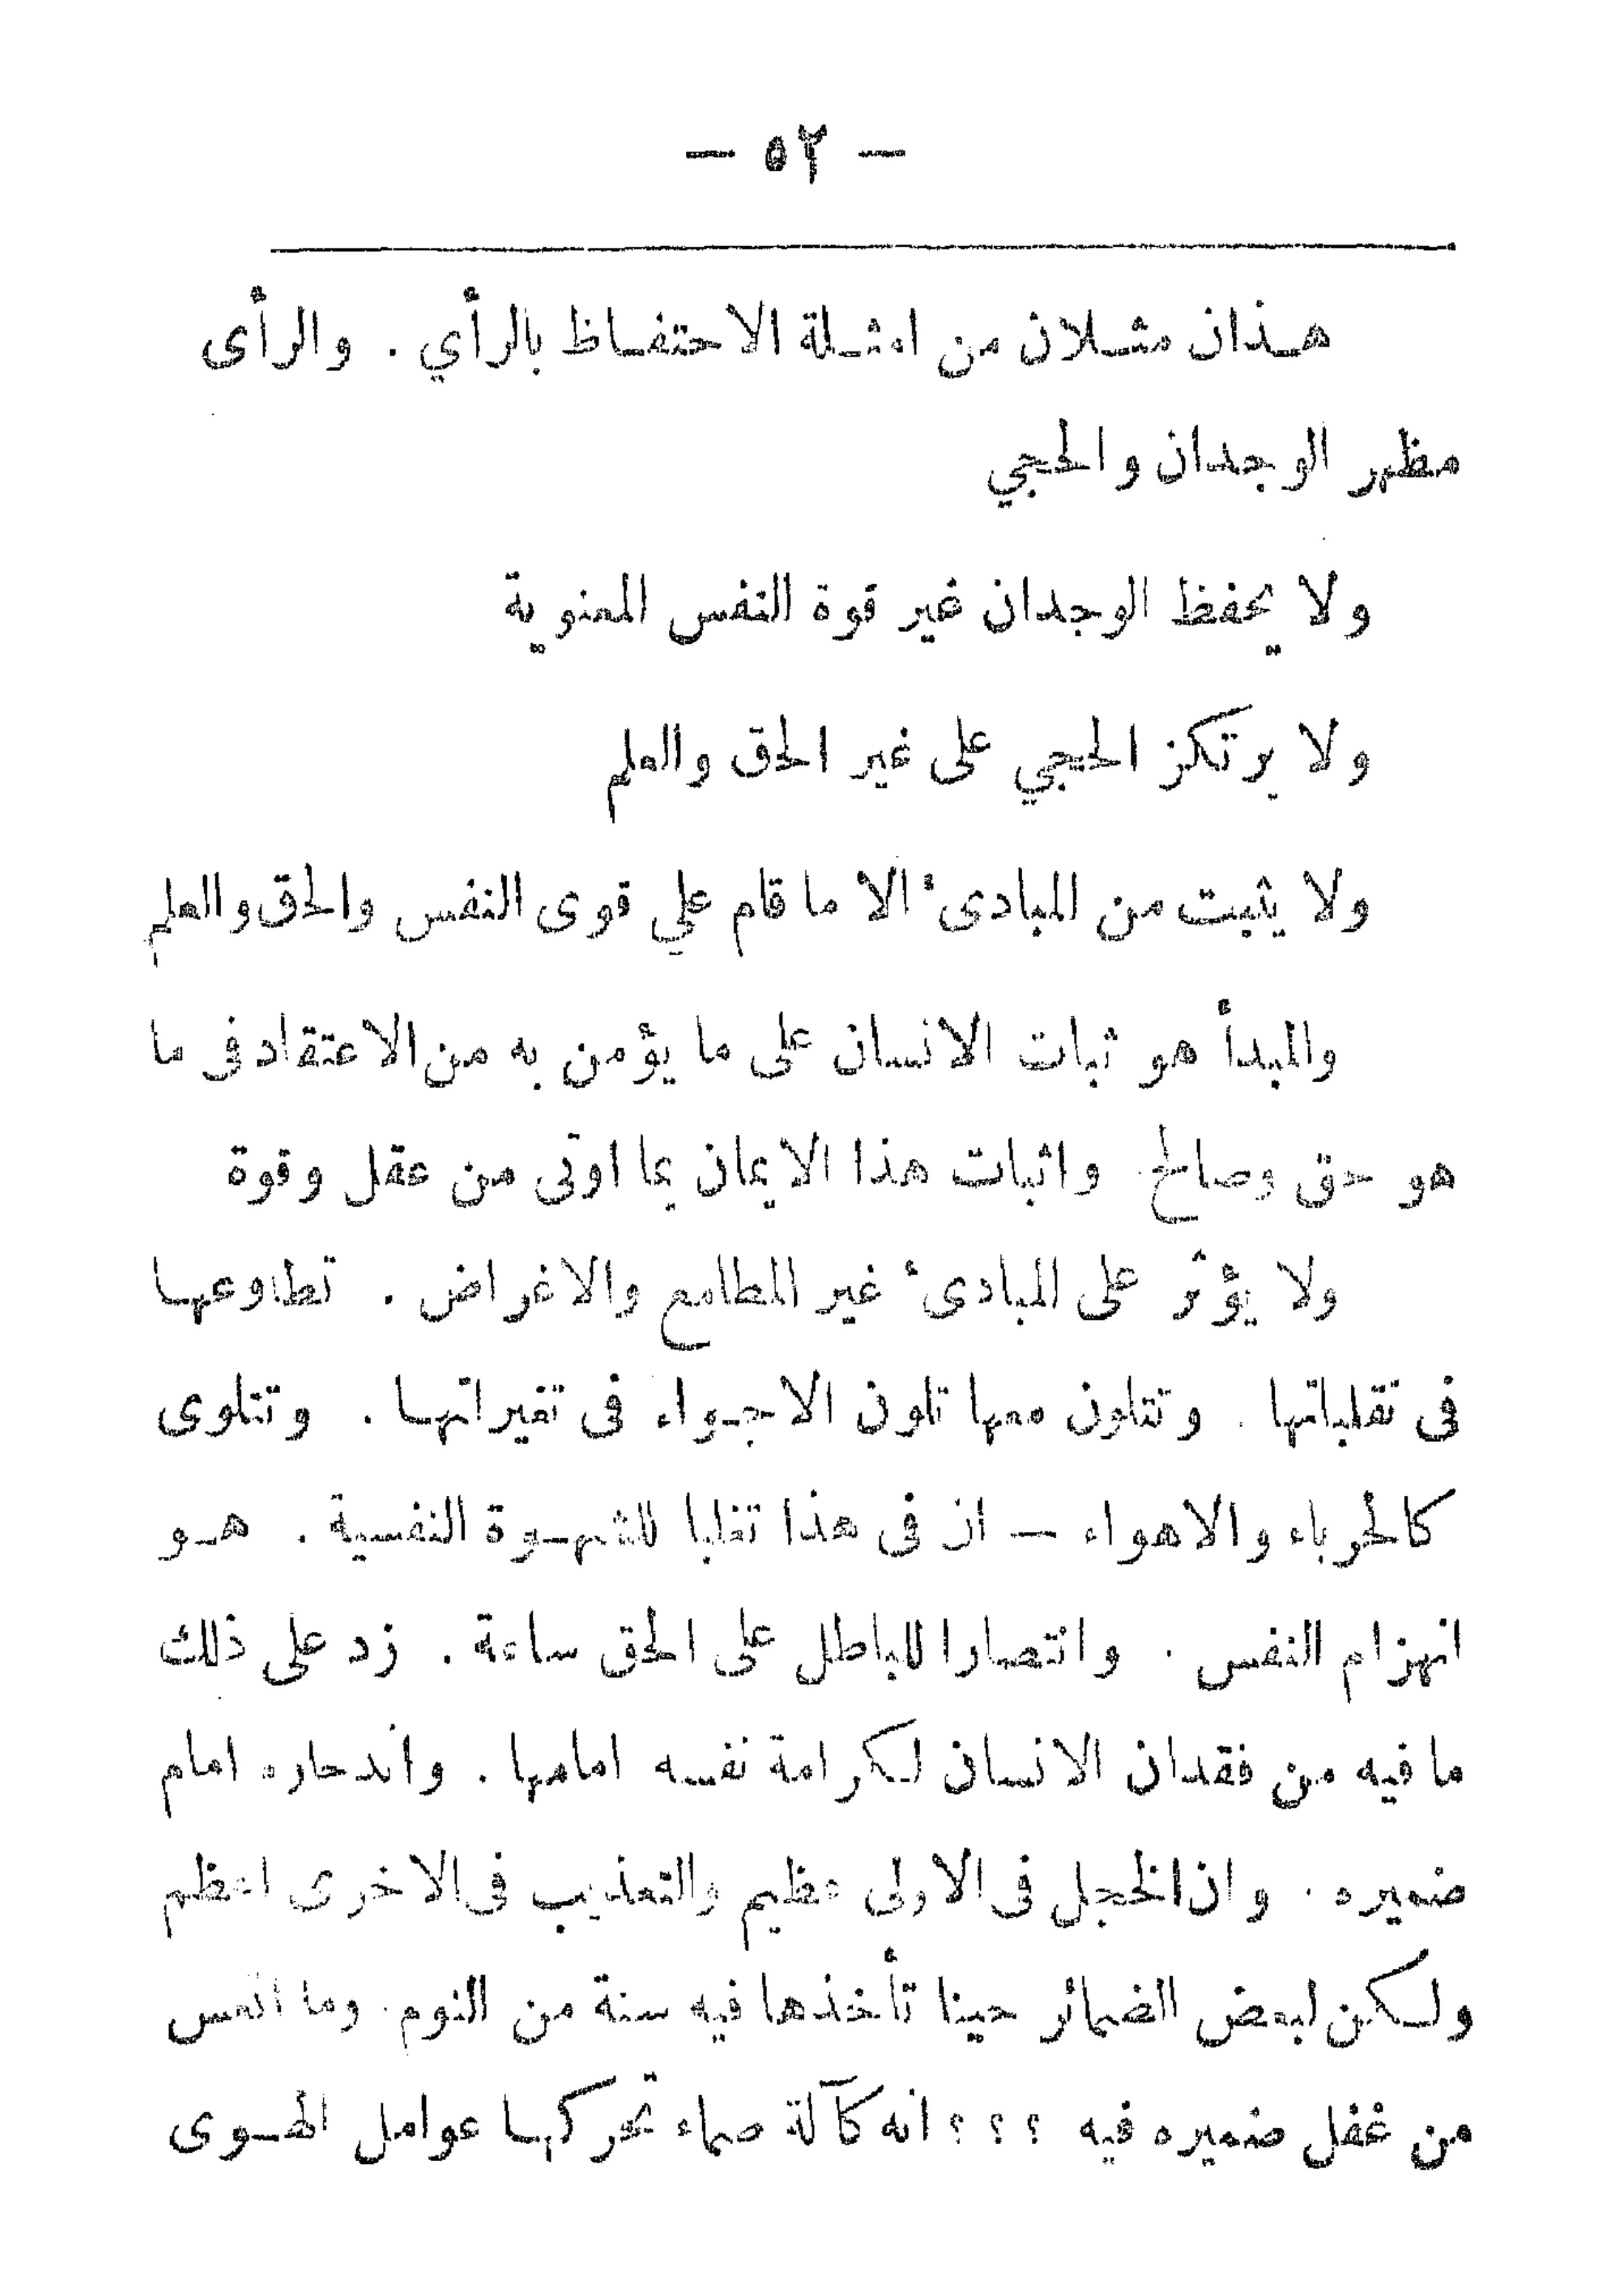 — ٥٢ —
هذان مثلان من امثلة الاحتفاظ بالرأي . والرأى
مظهر الوجدان والحجي
ولا يحفظ الوجدان غير قوة النفس المعنوية
ولا يرتكز الحجي على غير الحق والعلم
ولا يثبت من المبادىء الا ما قام علي قوى النفس والحق والعلم
والمبدأ هو ثبات الانسان على ما يؤمن به من الاعتقاد فى ما
هو حق وصالح . واثبات هذا الايمان بما اوتى من عقل وقوة
ولا يؤثر على المبادىء غير المطامع والاغراض . تطاوعها
فى تقلباتها . وتتلون معها تلون الاجواء فى تغيراتها . وتتلوى
كالحرباء والاهواء — ان فى هذا تغلبا للشهوة النفسية . هو
انهزام النفس . وانتصارا للباطل على الحق ساعة . زد على ذلك
ما فيه من فقدان الانسان لكرامة نفسه امامها . واندحاره امام
ضميره . وان الخجل فى الاولى عظيم والتعذيب فى الاخرى اعظم
ولكن لبعض الضمائر حينا تأخذها فيه سنة من النوم . وما اتعس
من غفل ضميره فيه ؟ ؟ ؟ انه كآلة صماء تحركها عوامل الهوى